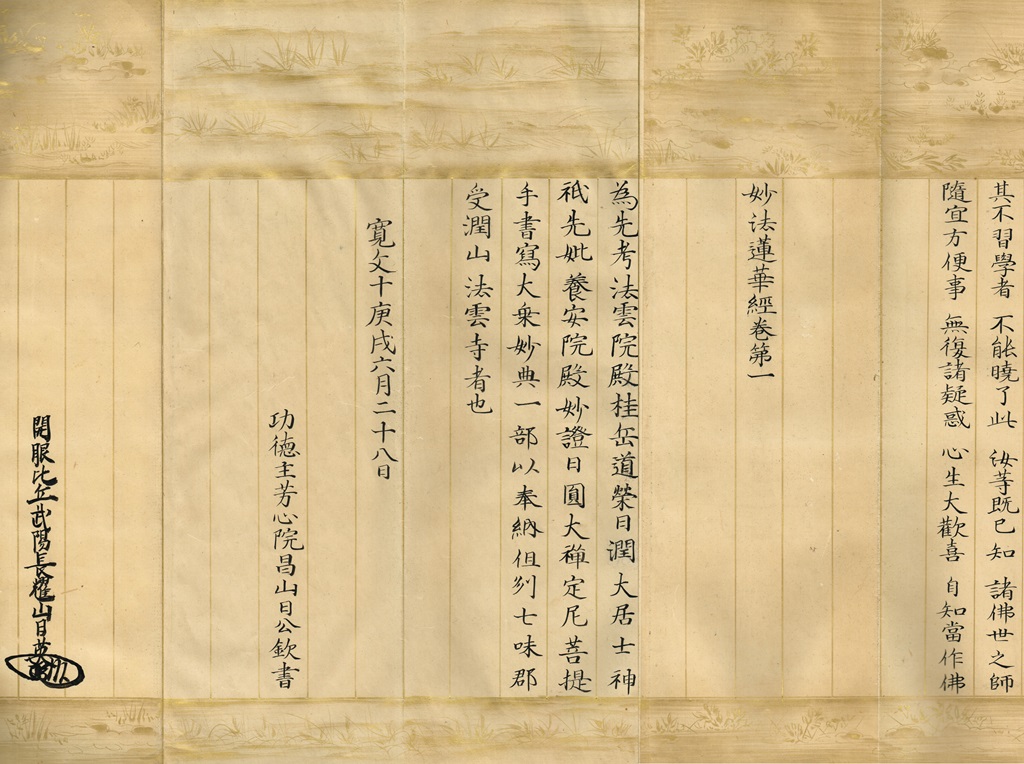 其不習學者 不能曉了此 汝等既已知 諸佛世之師
隨宜方便事 無復諸疑惑 心生大歡喜 自知當作佛
妙法蓮華經卷第一
為先考法雲院殿桂岳道榮日潤大居士神
祇先妣養安院殿妙證日圓大禅定尼菩提
手書寫大乗妙典一部以奉納但刕七味郡
受潤山法雲寺者也
寛文十庚戌六月二十八日
功徳主芳心院昌山日公欽書
開眼比丘武陽長耀山日